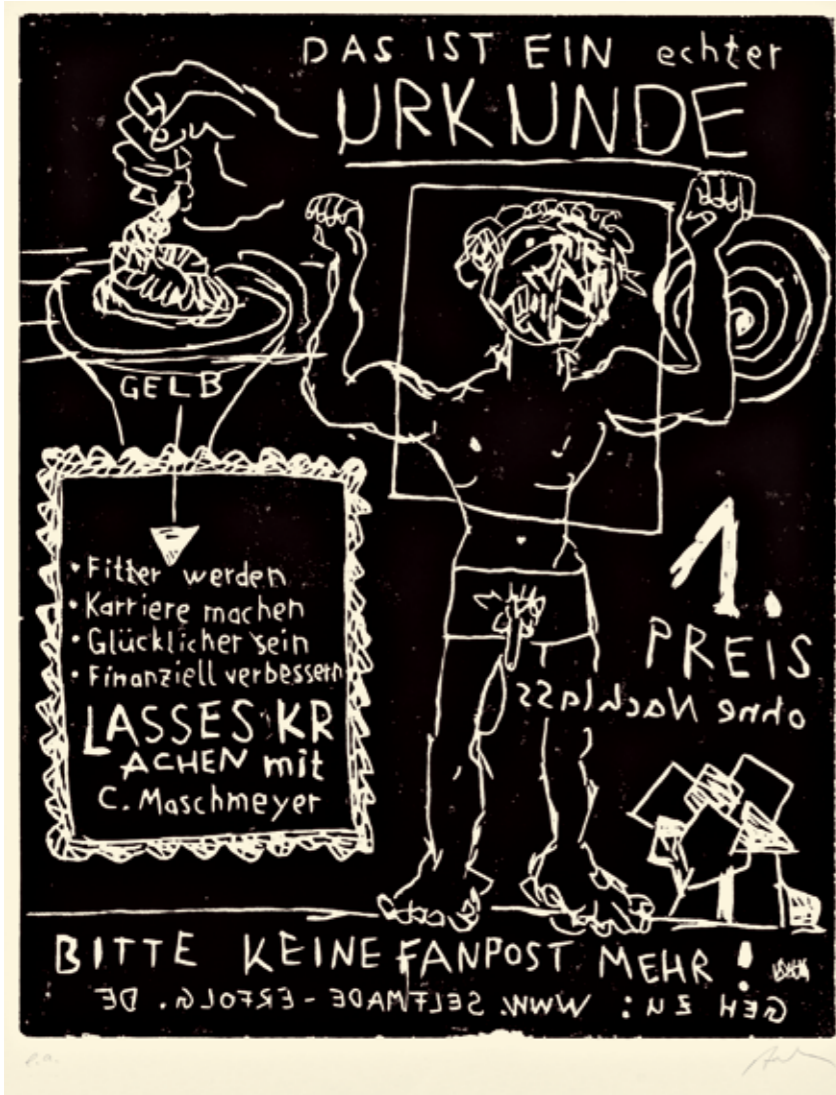 DAS IST EIN echter
URKUNDE
GELB
• Fitter werden
• Karriere machen
• Glücklicher sein
• Finanziell verbessern
LASSES KR
ACHEN mit
C. Maschmeyer
1.
PREIS
ohne Nachlass
BITTE KEINE FANPOST MEHR!
GEH ZU: WWW. SELFMADE-ERFOLG. DE